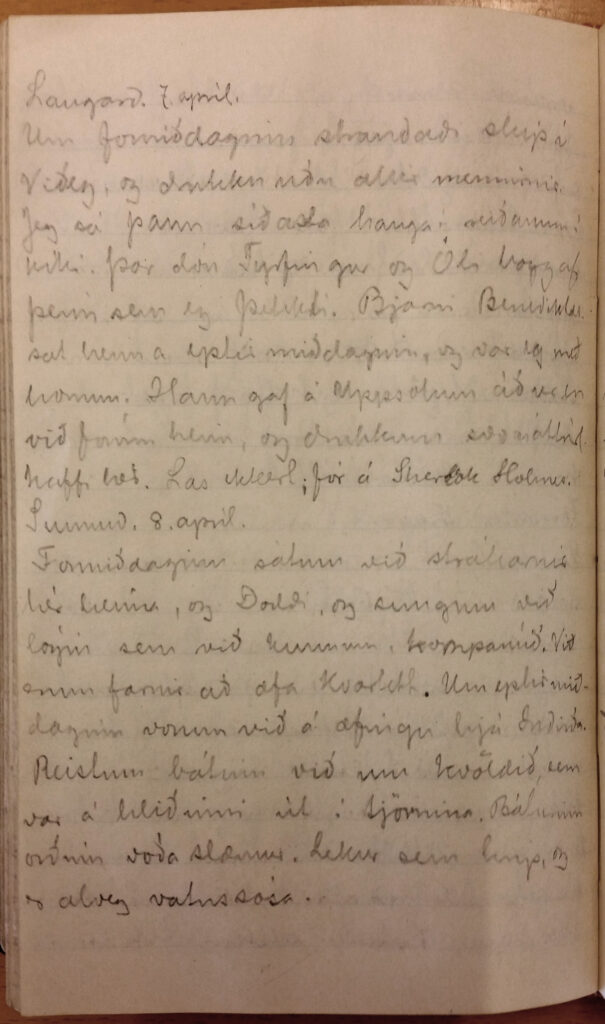 Laugard. 7. apríl.
Um formiðdaginn strandaði skip í
Viðey, og drukknuðu allir mennirnir.
Jeg sá þann síðasta hanga í reiðanum í
kíki. Þar dóu Tyrfingur og Óli
þeim sem eg þekkti. Bjarni Benedikts.
sat heima eptir miðdaginn, og var eg með
honum. Hann gaf á Uppsölum áður en
við fórum heim, og drukkum
kaffi hér. Las ekkert; fór á Sherlok Holmes.
Sunnud. 8. apríl.
Formiðdaginn sátum við strákarnir
hér heima, og Doddi, og sungum við
lögin sem við kunnum, kompaníið. Við
erum farnir að æfa Kvartett. Um eptirmið-
daginn vorum við á æfingu hjá Indriða.
Reistum bátinn við um kvöldið, sem
var á hliðinni út í tjörnina. Báturinn
orðinn voða slæmur. Lekur sem hrip, og
er alveg vatnssósa.